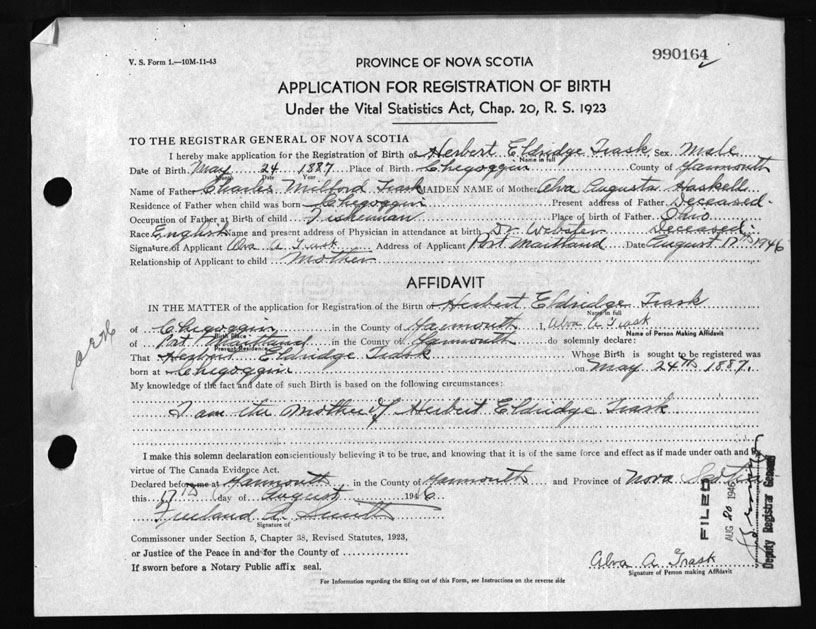 V. S. Form 1.—10M-11-43
990164
PROVINCE OF NOVA SCOTIA
APPLICATION FOR REGISTRATION OF BIRTH
Under the Vital Statistics Act, Chap. 20, R. S. 1923
TO THE REGISTRAR GENERAL OF NOVA SCOTIA
I hereby make application for the Registration of Birth of Herbert Eldridge Trask Sex Male
Name in full
Date of Birth May 24 1887 Place of Birth Chegoggin County of Yarmouth
Month Date Year
Name of Father Charles Milford Trask MAIDEN NAME of Mother Alva Augusta Haskell
Residence of Father when child was born Chegoggin Present address of Father Deceased
Occupation of Father at Birth of child Fisherman Place of birth of Father Ohio
Race English Name and present address of Physician in attendance at birth Dr Webster Deceased
Signature of Applicant Alva A Trask Address of Applicant Port Maitland Date August 17th 1946
Relationship of Applicant to child Mother
AFFIDAVIT
IN THE MATTER of the application for Registration of the Birth of Herbert Eldridge Trask
Name in full
of Chegoggin in the County of Yarmouth I, Alva A Trask
Birth Place Name of Person Making Affidavit
of Port Maitland in the County of Yarmouth do solemnly declare:
Present Residence
That Herbert Eldridge Trask Whose Birth is sought to be registered was
born at Chegoggin on May 24th 1887.
My knowledge of the fact and date of such Birth is based on the following circumstances:
I am the Mother of Herbert Eldridge Trask
I make this solemn declaration conscientiously believing it to be true, and knowing that it is of the same force and effect as if made under oath and by
virtue of The Canada Evidence Act.
Declared before me at Yarmouth in the County of Yarmouth and Province of Nova Scotia
this 17th day of August 1946
Signature of
Commissioner under Section 5, Chapter 38, Revised Statutes, 1923,
or Justice of the Peace in and for the County of
If sworn before a Notary Public affix seal.
Alva A Trask
Signature of Person making Affidavit
For Information regarding the filling out of this Form, see Instructions on the reverse side
FILED
AUG 20 1946
Deputy Registrar General